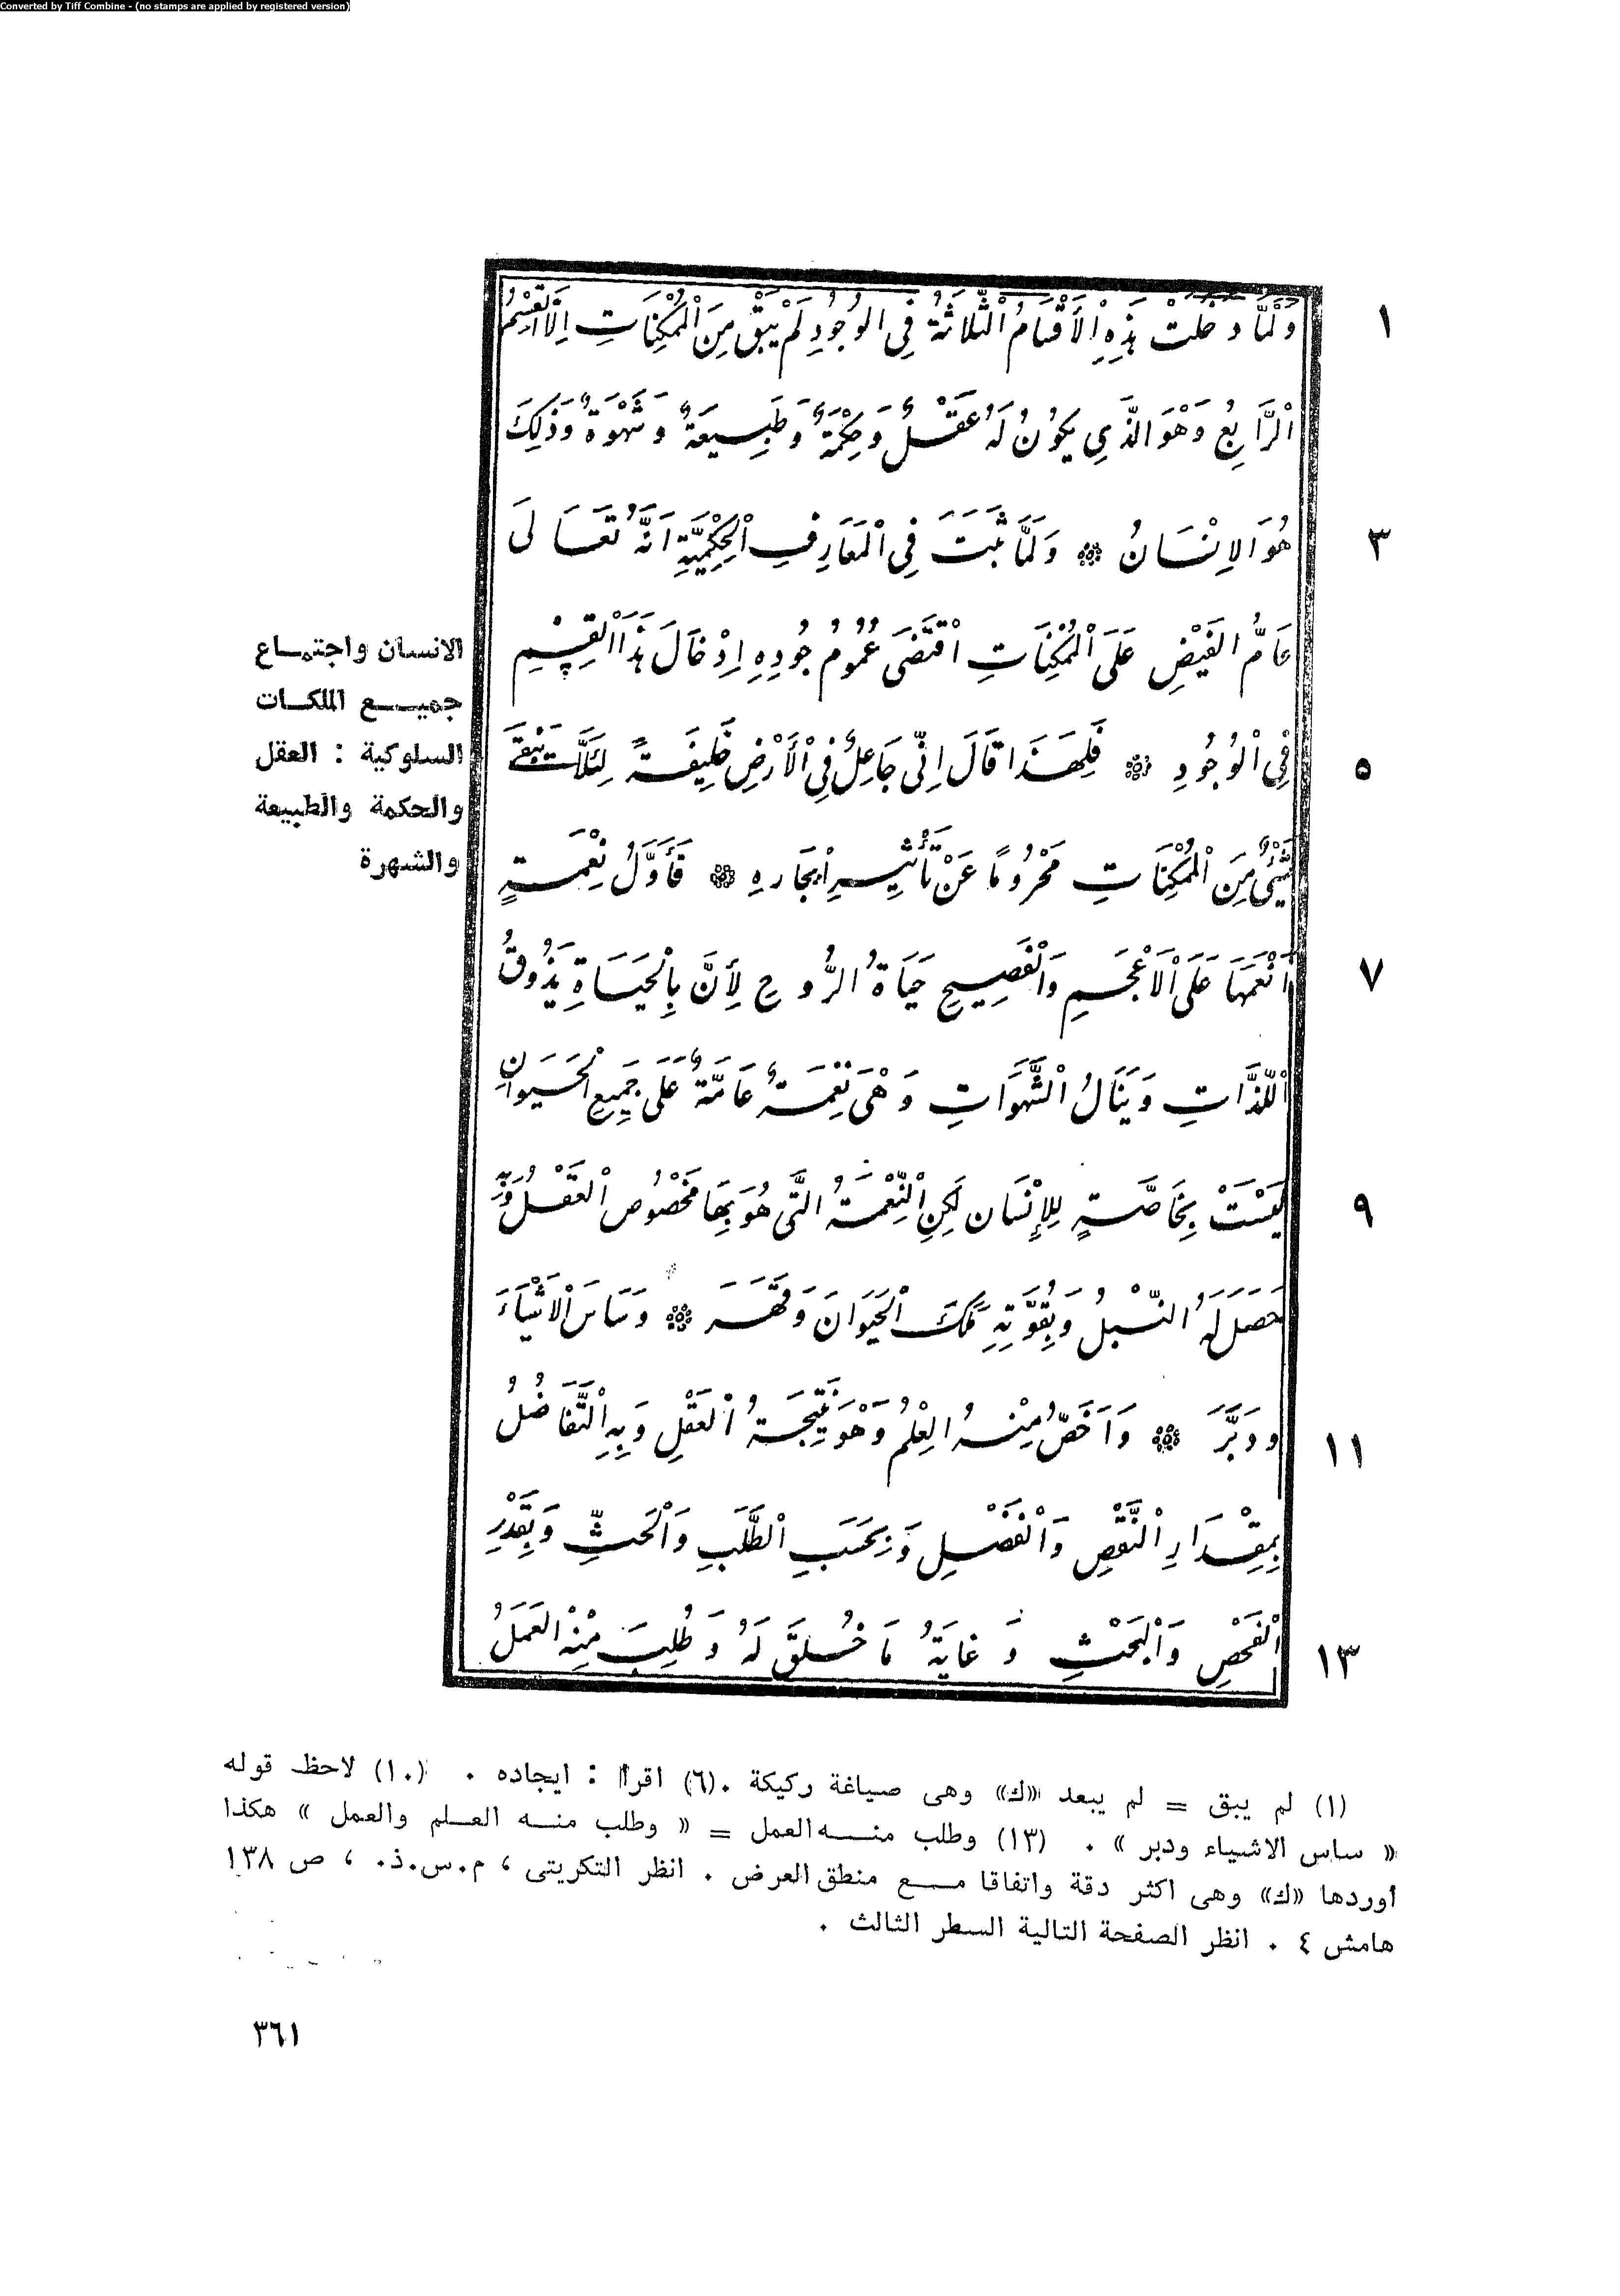 Converted by Tiff Combine - (no stamps are applied by registered version)
وَلَمَّا دَخَلَتْ هَذِهِ الأَقْسَامُ الْثَّلاَثَةُ فِي الوُجُودِ لَمْ يَبْقَ مِنَ الْمُمْكِنَاتِ اِلَّا الْقِسْمُ
١
الْرَّابِعُ وَهْوَ الَّذِي يَكُونُ لَهُ عَقْلٌ وَحِكْمَةٌ وَطَبِيعَةٌ وَشَهْوَةٌ وَذَلِكَ
هُوَ الاِنْسَانُ ۞ وَلَمَّا ثَبَتَ فِي الْمَعَارِفِ الْحِكْمِيَّةِ اَنَّهُ تَعَالَى
٣
عَامُّ الفَيْضِ عَلَى الْمُمْكِنَاتِ اقْتَضَى عُمُومُ جُودِهِ اِدْخَالَ هَذَا الْقِسْمِ
فِي الْوُجُودِ ۞ فَلِهَذَا قَالَ اِنِّي جَاعِلٌ فِي الْأَرْضِ خَلِيفَةً لِئَلَّا يَبْقَى
٥
شَيْئٌ مِنَ الْمُمْكِنَاتِ مَحْرُومًا عَنْ تَأْثِيرِ ايجَارِهِ ۞ فَأَوَّلُ نِعْمَةٍ
اَنْعَمَهَا عَلَى الْاَعْجَمِ وَالْفَصِيحِ حَيَاةُ الرُّوحِ لِأَنَّ بِالْحَيَاةِ يَذُوقُ
٧
الْلَّذَّاتِ وَيَنَالُ الْشَّهَوَاتِ وَهْىَ نِعْمَةٌ عَامَّةٌ عَلَى جَمِيعِ الْحَيَوَانِ
لَيْسَتْ بِخَاصَّةٍ لِلإِنْسَان لَكِنِ الْنِّعْمَةُ الَّتِي هُوَ بِهَا مَخْصُوص الْعَقْلُ وَبِهِ
٩
حَصَلَ لَهُ النُّبْلُ وَبِقُوَّتِهِ مَلَكَ الْحَيَوَانَ وَقَهَرَ ۞ وَسَاسَ الْاَشْيَاءَ
وَدَبَّرَ ۞ وَاَخَصُّ مِنْهُ الْعِلْمُ وَهْوَ نَتِيجَةُ الْعَقْلِ وَبِهِ الْتَّفَاضُلُ
١١
بِمِقْدَارِ الْنَّقْصِ وَالْفَضْلِ وَبِحَسَبِ الْطَّلَبِ وَالْحَثِّ وَبِقَدْرِ
الْفَحْصِ وَالْبَحْثِ وَ غَايَةُ مَا خُلِقَ لَهُ وَطُلِبَ مِنْهُ الْعَمَلُ
١٣
الانسان واجتماع
جميع الملكات
السلوكية : العقل
والحكمة والطبيعة
والشهرة
(١) لم يبق = لم يبعد «ك» وهى صياغة ركيكة .(٦) اقرأ : ايجاده . (١٠) لاحظ قوله
« ساس الاشياء ودبر » . (١٣) وطلب منه العمل = « وطلب منه العلم والعمل » هكذا
أوردها «ك» وهى اكثر دقة واتفاقا مع منطق العرض . انظر التكريتى ، م.س.ذ. ، ص ١٣٨
هامش ٤ . انظر الصفحة التالية السطر الثالث .
٣٦١